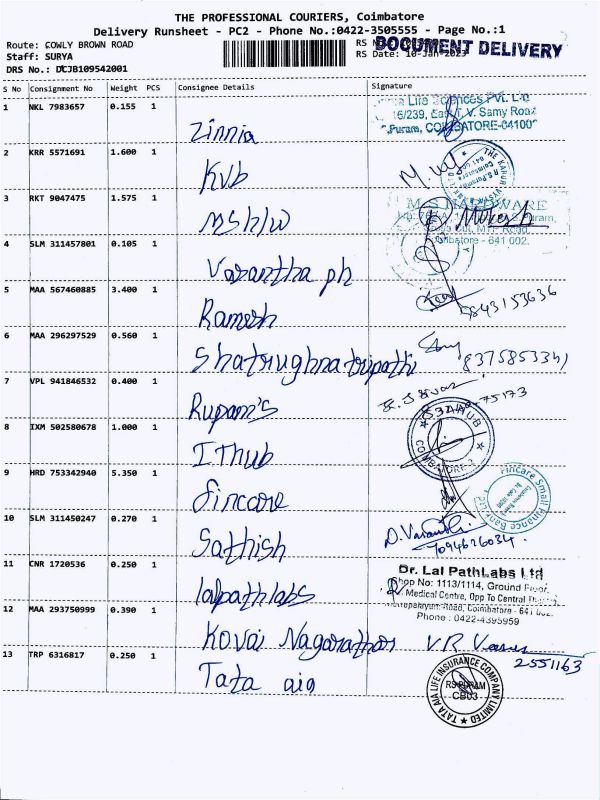 THE PROFESSIONAL COURIERS, Coimbatore
Delivery Runsheet - PC2 - Phone No.:0422-3505555 - Page No.:1
Route: COWLY BROWN ROAD
DOCUMENT DELIVERY
Staff: SURYA
RS Date: 10-Jan-2023
DRS No.: DCJB109542001
S No Consignment No Weight PCS Consignee Details Signature
1 NKL 7983657 0.155 1 Zinnia
Life Sciences Pvt. Ltd
16/239, East T.V. Samy Road
.Puram, COIMBATORE-641002
2 KRR 5571691 1.600 1 KVB
3 RKT 9047475 1.575 1 MSH/W
M.S HARDWARE
Mukesh
Coimbatore - 641 002.
4 SLM 311457801 0.105 1 Vasantha ph
5 MAA 567460885 3.400 1 Ramesh
9843153636
6 MAA 296297529 0.560 1 Shatrughna tripathi
8375853341
7 VPL 941846532 0.400 1 Rupam's
8 IXM 502580678 1.000 1 IThub
COIMBATORE
9 HRD 753342940 5.350 1 fincare
Fincare Small Finance Bank Ltd
10 SLM 311450247 0.270 1 Sathish
7094626034
11 CNR 1720536 0.250 1 lalpathlabs
Dr. Lal PathLabs Ltd
Shop No: 1113/1114, Ground Floor,
Medical Centre, Opp To Central
Road, Coimbatore - 641 002.
Phone : 0422-4395959
12 MAA 293750999 0.390 1 Kovai Nagarathar
2551163
13 TRP 6316817 0.250 1 Tata aig
TATA AIA LIFE INSURANCE COMPANY LIMITED
RS PURAM
CB03